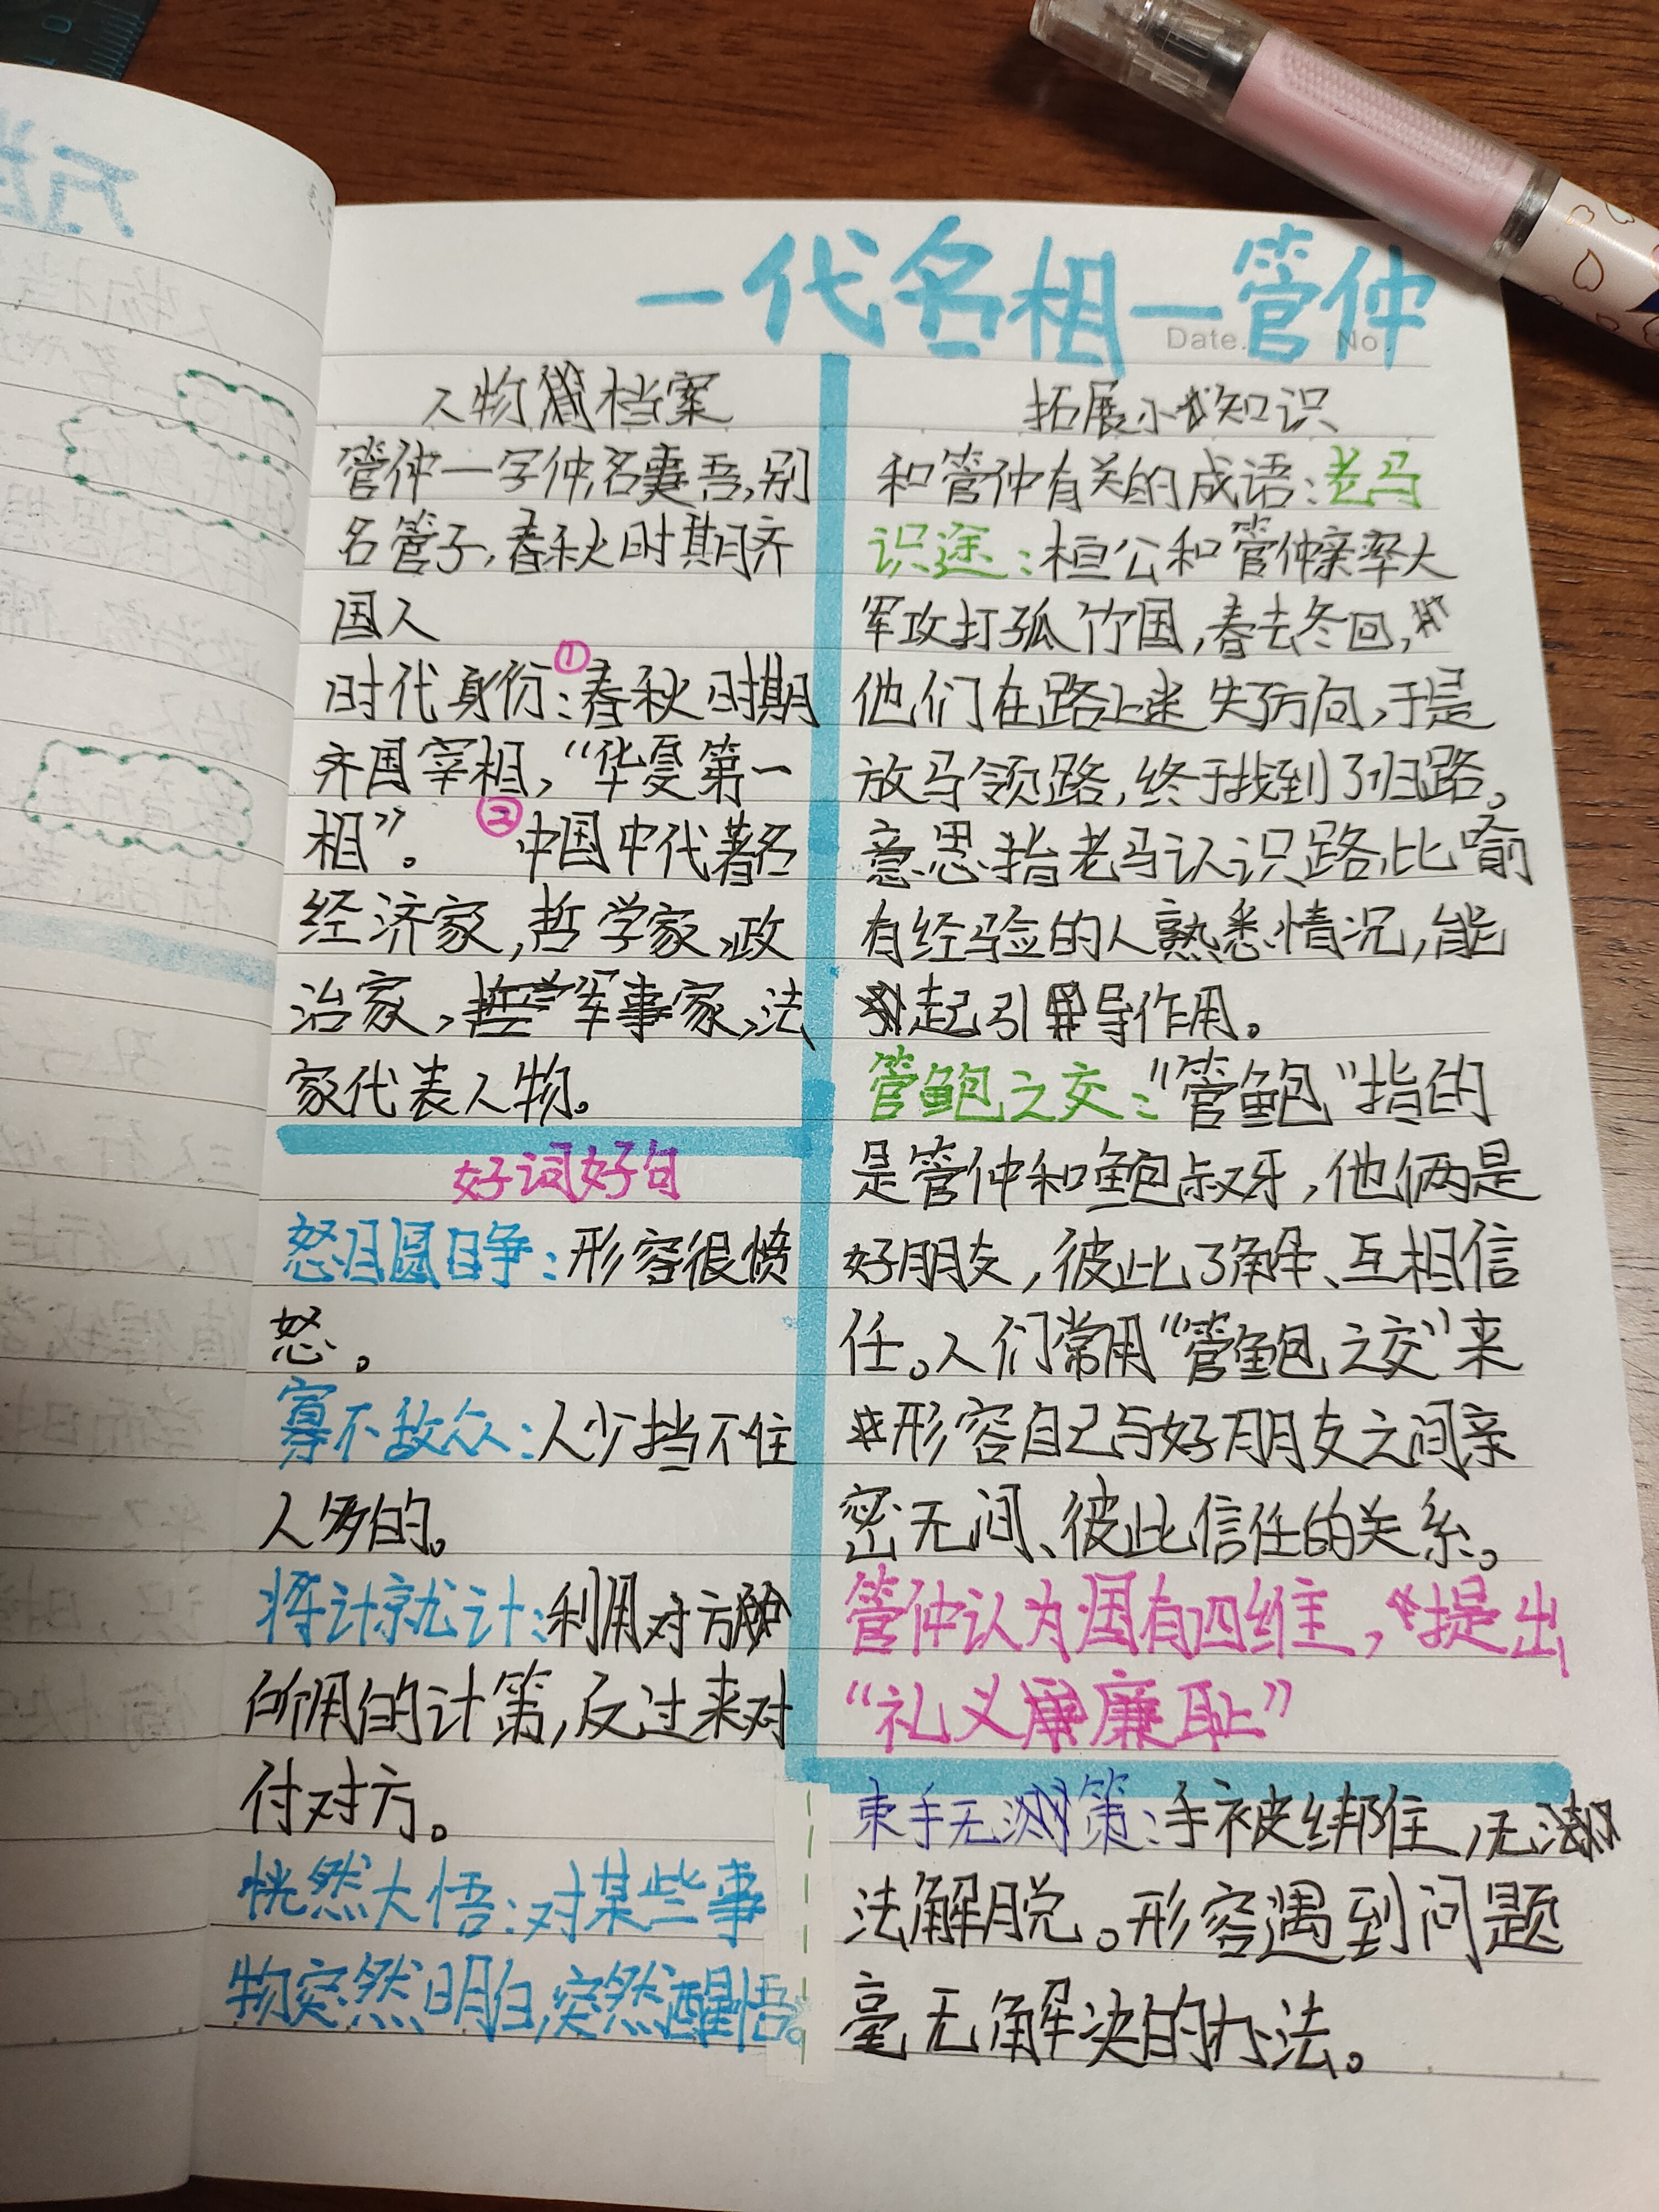 一代名相一管仲
Date.
No.
人物档案
管仲一字仲,名夷吾,别
名管子,春秋时期齐
国人
时代身份:①春秋时期
齐国宰相,“华夏第一
相”。 ②中国中代著名
经济家,哲学家,政
治家,军事家,法
家代表人物。
好词好句
怒目圆睁:形容很愤
怒。
寡不敌众:人少挡不住
人多的。
将计就计:利用对方
所用的计策,反过来对
付对方。
恍然大悟:对某些事
物突然明白,突然醒悟。
拓展小知识
和管仲有关的成语:老马
识途:桓公和管仲亲率大
军攻打孤竹国,春去冬回,
他们在路上迷失了方向,于是
放马领路,终于找到了归路。
意思指老马认识路,比喻
有经验的人熟悉情况,能
起引导作用。
管鲍之交:“管鲍”指的
是管仲和鲍叔牙,他俩是
好朋友,彼此了解、互相信
任。人们常用“管鲍之交”来
形容自己与好朋友之间亲
密无间、彼此信任的关系。
管仲认为国有四维,提出
“礼义廉耻”
束手无策:手被绑住,无
法解脱。形容遇到问题
毫无解决的办法。